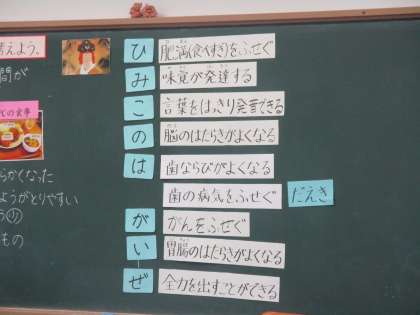 考えよう。
間が
の食事
らかくなった
ようがとりやすい
もの
ひ 肥満(食べすぎ)をふせぐ
み 味覚が発達する
こ 言葉をはっきり発音できる
の 脳のはたらきがよくなる
は 歯ならびがよくなる
歯の病気をふせぐ だえき
が がんをふせぐ
い 胃腸のはたらきがよくなる
ぜ 全力を出すことができる